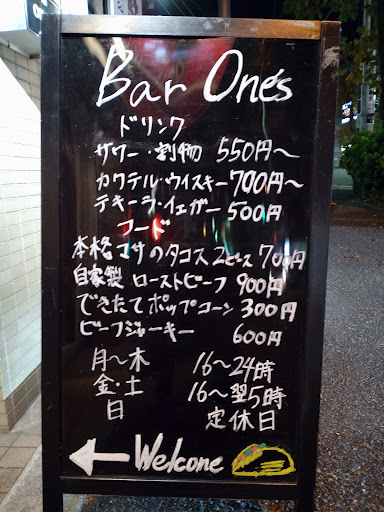 Bar One's
ドリンク
サワー・割物 550円～
カクテル・ウイスキー 700円～
テキーラ・イェガー 500円
フード
本格マサのタコス 2ピース 700円
自家製 ローストビーフ 900円
できたてポップコーン 300円
ビーフジャーキー 600円
月～木 16～24時
金・土 16～翌5時
日 定休日
← Welcone